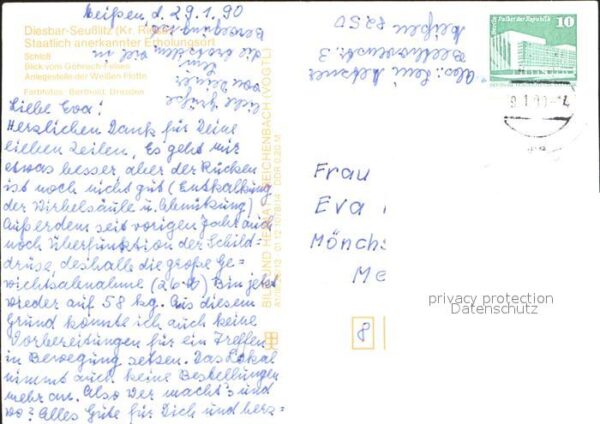 Meißen d. 29.1.90
Diesbar-Seußlitz (Kr. Riesa)
Staatlich anerkannter Erholungsort
Schloß
Blick vom Göhrisch-Felsen
Anlegestelle der Weißen Flotte
Farbfotos: Berthold, Dresden
Liebe Eva!
Herzlichen Dank für Deine
lieben Zeilen. Es geht mir
etwas besser, aber der Rücken
ist noch nicht gut (Entkalkung
der Wirbelsäule u. Abnützung)
Außerdem seit vorigen Jahr auch
noch Überfunktion der Schild-
drüse, deshalb die große Ge-
wichtsabnahme (26 ) Bin jetzt
wieder auf 58 kg. Aus diesem
Grund konnte ich auch keine
Vorbereitungen für ein Treffen
in Bewegung setzen. Das Lokal
nimmt auch keine Bestellungen
mehr an. Also wer macht's und
wo? Alles Gute für Dich und herz-
liche Grüße
von Deiner
BILD UND HEIMAT REICHENBACH (VOGTL)
Abs.:
Beethovenstr. 3
Meißen 8250
Palast der Republik
10
Frau
Eva
Mönch
Me
8
privacy protection
Datenschutz